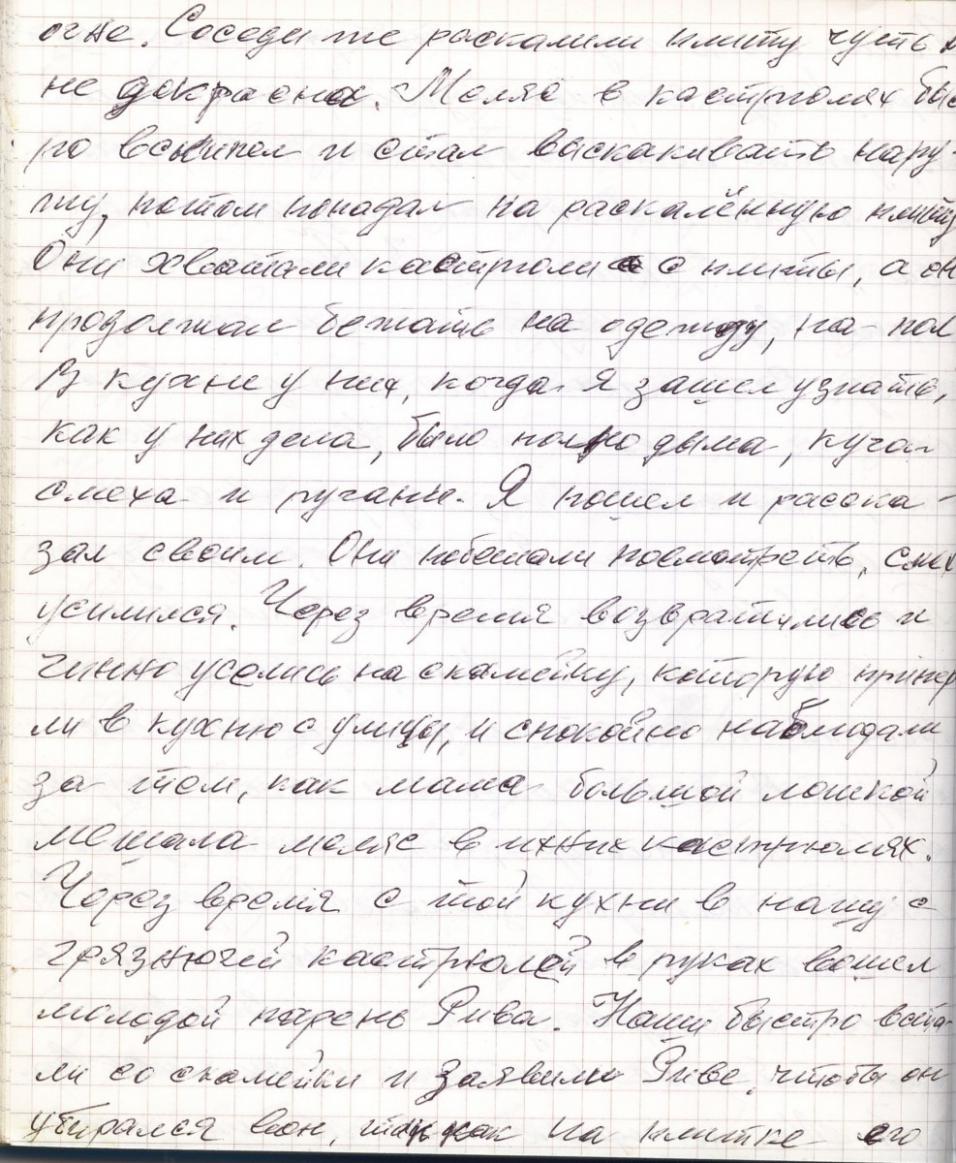 огне. Соседи же раскалили плиту чуть
не докрасна. Меляс в кастрюлях быс
ро вскипел и стал выскакивать нару-
жу, потом попадал на раскалённую плиту
Они хватали кастрюли с плиты, а он
продолжал бежать на одежду, на пол
В кухне у них, когда я зашел узнать,
как у них дела, было полно дыма, куча
смеха и ругани. Я пошел и расска-
зал своим. Они побежали посмотреть, смех
усилился. Через время возвратились и
чинно уселись на скамейку, которую припер
ли в кухню с улицы, и спокойно наблюдали
за тем, как мама большой ложкой
мешала меляс в ихних кастрюлях.
Через время с той кухни в нашу с
грязнючей кастрюлей в руках вошел
молодой парень Рива. Наши быстро вста-
ли со скамейки и заявили Риве, чтобы он
убирался вон, так как на плитке его